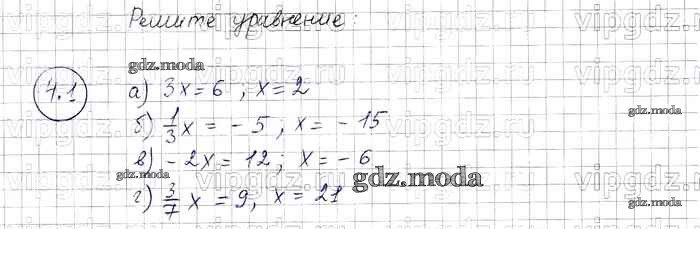 Решите уравнение:
gdz.moda
4.1
а) 3x = 6 , x = 2
gdz.moda
б) 1/3 x = - 5 ; x = - 15
в) - 2x = 12 ; x = - 6
gdz.moda
gdz.moda
г) 3/7 x = 9, x = 21
gdz.moda
vipgdz.ru
vipgdz.ru
vipgdz.ru
vipgdz.ru